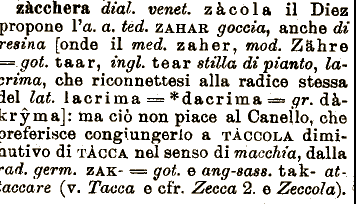 zàcchera dial. venet. zàcola il Diez
propone l'a. a. ted. ZAHAR goccia, anche di
resina [onde il med. zaher, mod. Zähre
= got. taar, ingl. tear stilla di pianto, la-
crima, che riconnettesi alla radice stessa
del lat. lacrima = *dacrima = gr. dà-
krŷma]: ma ciò non piace al Canello, che
preferisce congiungerlo a TÀCCOLA dimi-
nutivo di TÀCCA nel senso di macchia, dalla
rad. germ. ZAK- = got. e ang-sass. tak- at-
taccare (v. Tacca e cfr. Zecca 2. e Zeccola).